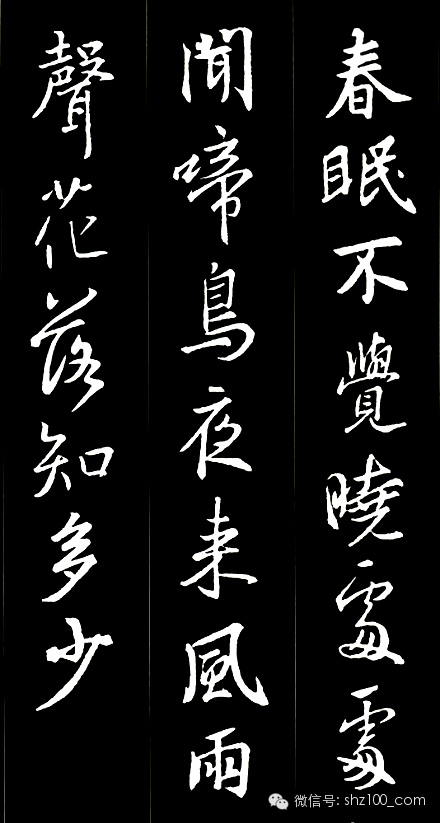 春眠不覺曉處處
聞啼鳥夜来風雨
聲花落知多少
微信号: shz100_com